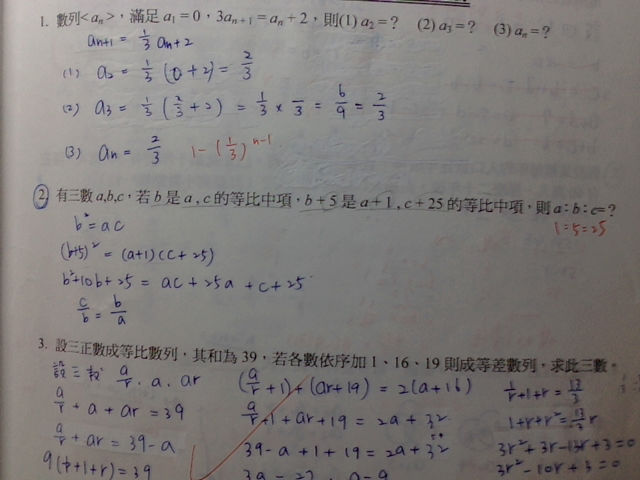 1. 數列<aₙ>,滿足 a₁=0,3aₙ₊₁=aₙ+2,則(1) a₂=? (2) a₃=? (3) aₙ=?
aₙ₊₁ = 1/3 aₙ+2
(1) a₂ = 1/3 (0+2) = 2/3
(2) a₃ = 1/3 (2/3+2) = 1/3 × /3 = 6/9 = 2/3
(3) aₙ = 2/3 1-(1/3)ⁿ⁻¹
2. 有三數 a,b,c,若 b 是 a,c 的等比中項,b+5 是 a+1,c+25 的等比中項,則 a:b:c=?
b²=ac 1:5:25
(b+5)² = (a+1)(c+25)
b²+10b+25 = ac+25a+c+25
c/b = b/a
3. 設三正數成等比數列,其和為 39,若各數依序加 1、16、19 則成等差數列,求此三數。
設三數 a/r, a, ar (a/r+1)+(ar+19) = 2(a+16) 1/r+1+r=13/3
a/r+a+ar=39 a/r+1+ar+19 = 2a+32 1+r+r²=13/3 r
a/r+ar=39-a 39-a+1+19=2a+32 3r²+3r-13r+3=0
3r²-10r+3=0